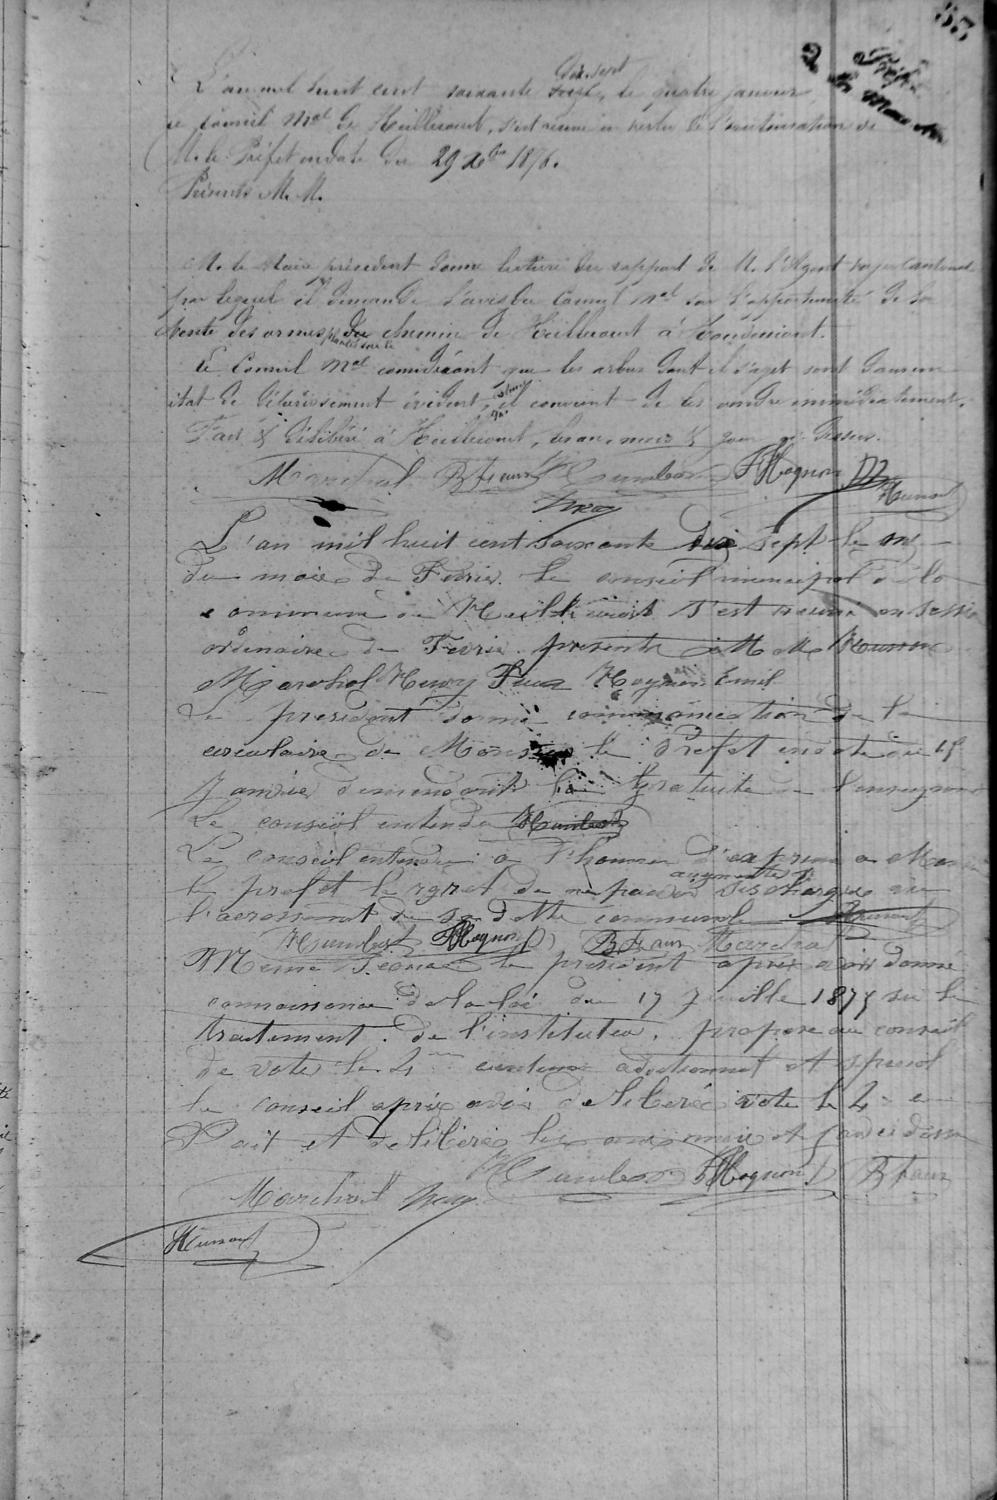 33
L'an mil huit cent soixante dix sept, le quatre janvier
le Conseil Mal de Heillecourt, s'est réuni en vertu de l'autorisation de
M. le Préfet en date du 29 Xbre 1876.
Présents M. M.
M. le Maire président donne lecture du rapport de M. l'Agent voyer Cantonal
par lequel il demande l'avis du Conseil Mal sur l'opportunité de la
vente des ormes plantés sur le chemin de Heillecourt à Houdemont.
Le Conseil Mal considérant que les arbres dont il s'agit sont dans un
état de dépérissement évident, qu'il convient de les vendre immédiatement.
Fait & délibéré à Heillecourt, les an, mois & jour que dessus.
Marchal B franc Humbert Hognon Husson
Henry
L'an mil huit cent soixante dix sept le onze
du mois de Fevrie le conseil municipal de la
commune de Heillecourt s'est reuni en session
ordinaire de Fevrie. presents M M Husson
Marchal Henry Franc Hognon Emil
Le president donne communication de la
circulaire de Monsieur le Prefet en date du 15
Janvier demandant la gratuité de l'enseignement
Le conseil entendu Humbert
Le conseil entendu a l'honneur d'exprime a Monsieur
le prefet le rgret de ne pouvoir augmenter ses charges vu
l'acrossement de sa dette communal Husson
Humbert Hognon B franc Marchal
Meme Seance le president apres avoir donné
connaissance de la loi du 17 Juille 1875 sur le
traitement de l'instituteur, propose au conseil
de vote le 4me centime additionnel et special
le conseil apres avoir deliberé vote le 4me
Fait et deliberé les ans mois et jour ci dessu
Humbert Hognon B franc
Marchal Henry
Husson